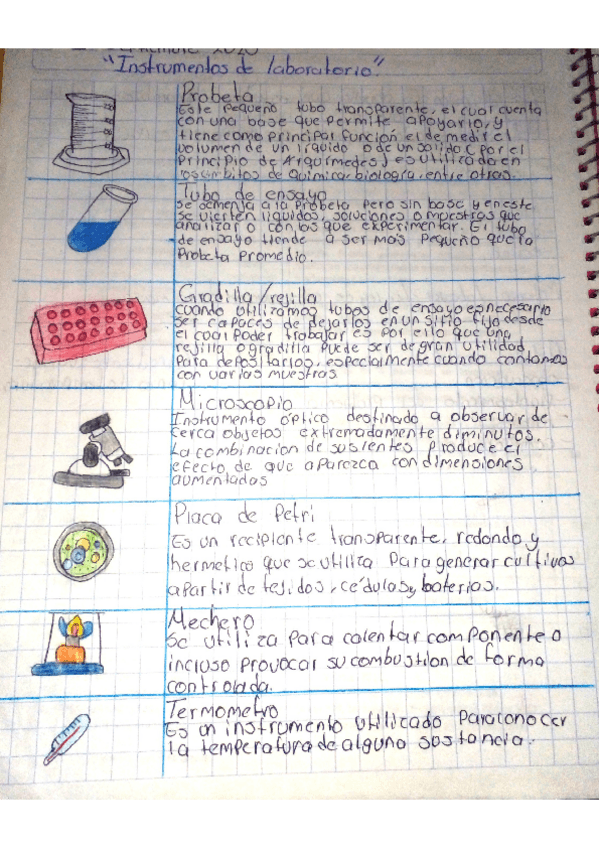 2020
"Instrumentos de laboratorio".
Probeta
Este pequeño tubo transparente, el cual cuenta
con una base que permite apoyarlo, y
tiene como principal función el de medir el
volumen de un líquido o de un solido (por el
Principio de Arquímedes) es utilizada en
los ambitos de química, biología, entre otras.
Tubo de ensayo
se asemenja a la Probeta pero sin base y en este
se vierten líquidos, soluciones o muestras que
analizar o con los que experimentar. El tubo
de ensayo tiende a ser más pequeño que la
Probeta Promedio.
Gradilla/rejilla
cuando utilizamos tubos de ensayo es necesario
ser capaces de dejarlos en un sitio fijo desde
el cual poder trabajar es por ello que una
rejilla o gradilla puede ser de gran utilidad
Para depositarlos, especialmente cuando contamos
con varias muestras
Microscopio
Instrumento óptico destinado a observar de
cerca objetos extremadamente diminutos.
La combinacion de sus lentes produce el
efecto de que aparezca con dimensiones
aumentadas
Placa de Petri
Es un recipiente transparente, redondo y
hermetico que se utiliza Para generar cultivos
a partir de tejidos, cédulas y baterias.
Mechero
Se utiliza para calentar componente o
incluso provocar su combustion de forma
controlada.
Termometro
Es un instrumento utilizado Para conocer
la temperatura de alguna sustancia.